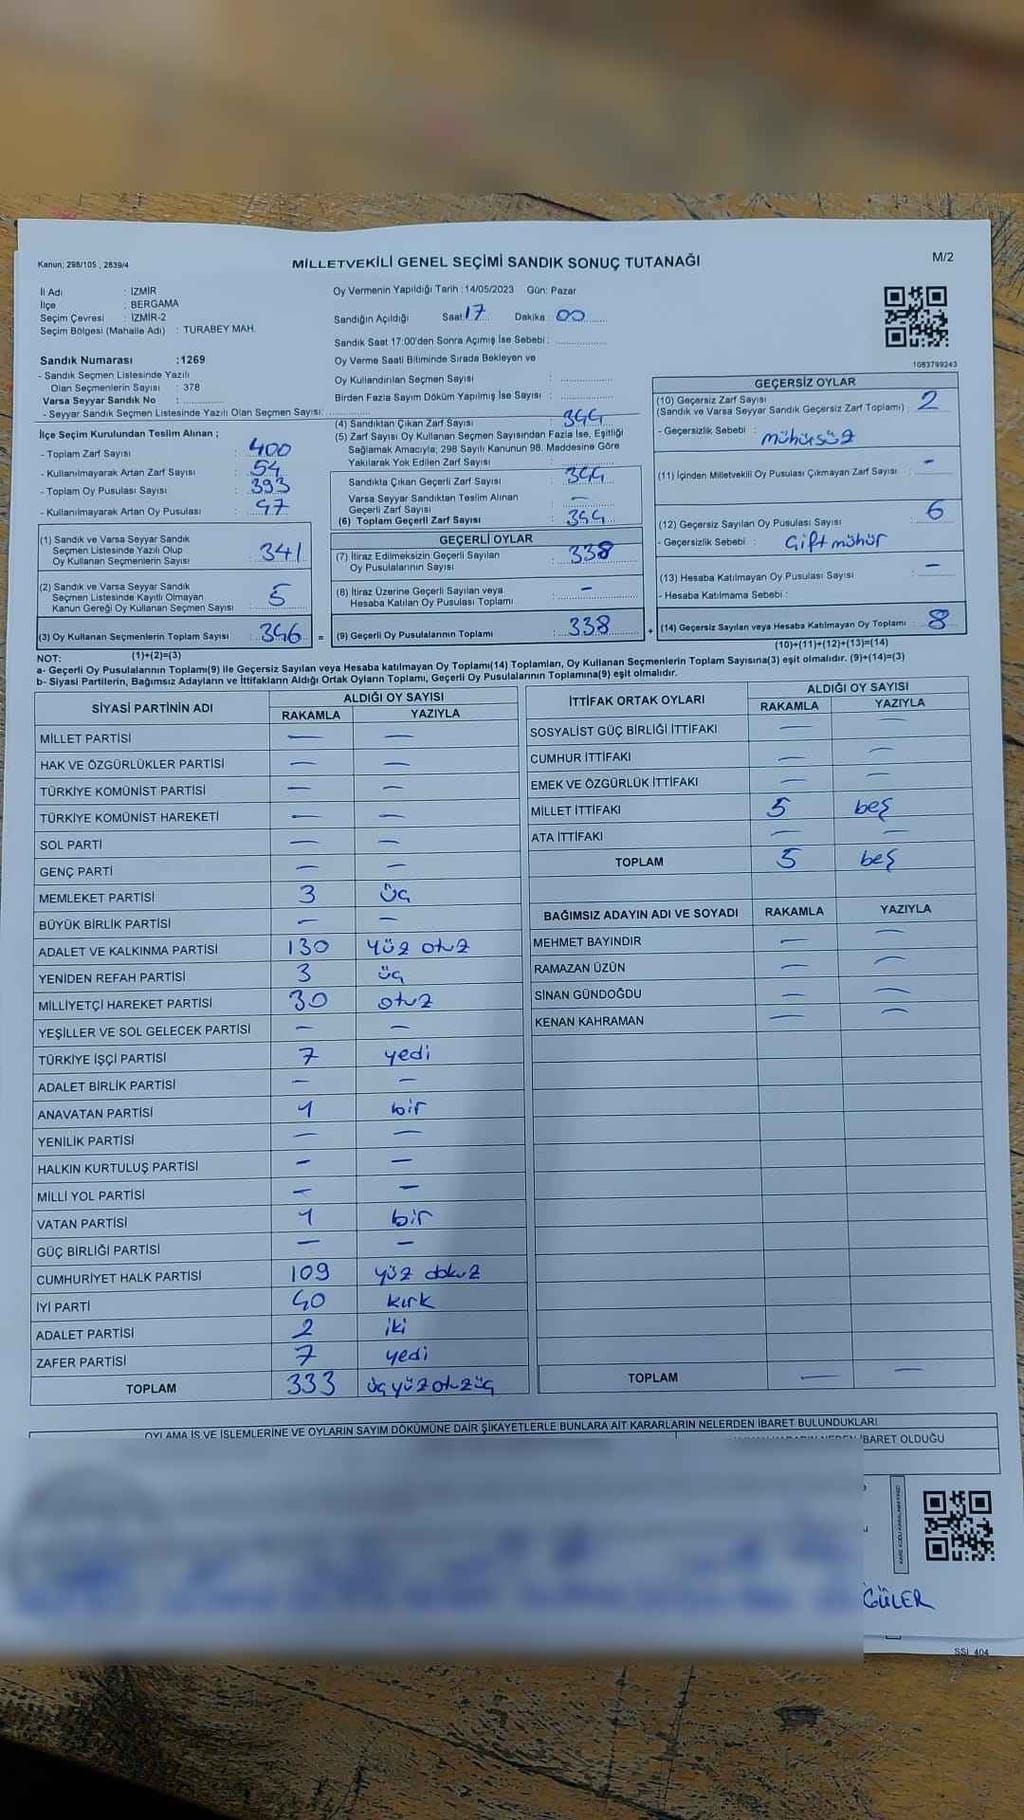 Kanun; 298/105 , 2839/4
MİLLETVEKİLİ GENEL SEÇİMİ SANDIK SONUÇ TUTANAĞI
M/2
İl Adı : İZMİR
İlçe : BERGAMA
Seçim Çevresi : İZMİR-2
Seçim Bölgesi (Mahalle Adı) : TURABEY MAH.
Oy Vermenin Yapıldığı Tarih :14/05/2023 Gün: Pazar
Sandığın Açıldığı Saat 17 Dakika 00
Sandık Saat 17:00'den Sonra Açımış İse Sebebi :
Oy Verme Saati Bitiminde Sırada Bekleyen ve
Oy Kullandırılan Seçmen Sayısı :
Birden Fazla Sayım Döküm Yapılmış İse Sayısı :
1063799243
Sandık Numarası :1269
- Sandık Seçmen Listesinde Yazılı
Olan Seçmenlerin Sayısı : 378
Varsa Seyyar Sandık No :
- Seyyar Sandık Seçmen Listesinde Yazılı Olan Seçmen Sayısı:
İlçe Seçim Kurulundan Teslim Alınan ;
- Toplam Zarf Sayısı : 400
- Kullanılmayarak Artan Zarf Sayısı : 54
- Toplam Oy Pusulası Sayısı : 393
- Kullanılmayarak Artan Oy Pusulası : 47
(1) Sandık ve Varsa Seyyar Sandık
Seçmen Listesinde Yazılı Olup
Oy Kullanan Seçmenlerin Sayısı : 341
(2) Sandık ve Varsa Seyyar Sandık
Seçmen Listesinde Kayıtlı Olmayan
Kanun Gereği Oy Kullanan Seçmen Sayısı : 5
(3) Oy Kullanan Seçmenlerin Toplam Sayısı : 346 =
(1)+(2)=(3)
(4) Sandıktan Çıkan Zarf Sayısı : 344
(5) Zarf Sayısı Oy Kullanan Seçmen Sayısından Fazla İse, Eşitliği
Sağlamak Amacıyla; 298 Sayılı Kanunun 98. Maddesine Göre
Yakılarak Yok Edilen Zarf Sayısı :
Sandıkta Çıkan Geçerli Zarf Sayısı : 344
Varsa Seyyar Sandıktan Teslim Alınan
Geçerli Zarf Sayısı : —
(6) Toplam Geçerli Zarf Sayısı : 344
GEÇERLİ OYLAR
(7) İtiraz Edilmeksizin Geçerli Sayılan
Oy Pusulalarının Sayısı : 338
(8) İtiraz Üzerine Geçerli Sayılan veya
Hesaba Katılan Oy Pusulası Toplamı : -
(9) Geçerli Oy Pusulalarının Toplamı : 338 +
GEÇERSİZ OYLAR
(10) Geçersiz Zarf Sayısı
(Sandık ve Varsa Seyyar Sandık Geçersiz Zarf Toplamı) : 2
- Geçersizlik Sebebi : mühürsüz
(11) İçinden Milletvekili Oy Pusulası Çıkmayan Zarf Sayısı : -
(12) Geçersiz Sayılan Oy Pusulası Sayısı : 6
- Geçersizlik Sebebi : Çift mühür
(13) Hesaba Katılmayan Oy Pusulası Sayısı : -
- Hesaba Katılmama Sebebi :
(14) Geçersiz Sayılan veya Hesaba Katılmayan Oy Toplamı : 8
(10)+(11)+(12)+(13)=(14)
NOT:
a- Geçerli Oy Pusulalarının Toplamı(9) ile Geçersiz Sayılan veya Hesaba katılmayan Oy Toplamı(14) Toplamları, Oy Kullanan Seçmenlerin Toplam Sayısına(3) eşit olmalıdır. (9)+(14)=(3)
b- Siyasi Partilerin, Bağımsız Adayların ve İttifakların Aldığı Ortak Oyların Toplamı, Geçerli Oy Pusulalarının Toplamına(9) eşit olmalıdır.
SİYASİ PARTİNİN ADI ALDIĞI OY SAYISI
RAKAMLA YAZIYLA
MİLLET PARTİSİ — —
HAK VE ÖZGÜRLÜKLER PARTİSİ — —
TÜRKİYE KOMÜNİST PARTİSİ — —
TÜRKİYE KOMÜNİST HAREKETİ — —
SOL PARTİ — —
GENÇ PARTİ — —
MEMLEKET PARTİSİ 3 üç
BÜYÜK BİRLİK PARTİSİ — —
ADALET VE KALKINMA PARTİSİ 130 yüz otuz
YENİDEN REFAH PARTİSİ 3 üç
MİLLİYETÇİ HAREKET PARTİSİ 30 otuz
YEŞİLLER VE SOL GELECEK PARTİSİ — —
TÜRKİYE İŞÇİ PARTİSİ 7 yedi
ADALET BİRLİK PARTİSİ — —
ANAVATAN PARTİSİ 1 bir
YENİLİK PARTİSİ — —
HALKIN KURTULUŞ PARTİSİ — —
MİLLİ YOL PARTİSİ — —
VATAN PARTİSİ 1 bir
GÜÇ BİRLİĞİ PARTİSİ — —
CUMHURİYET HALK PARTİSİ 109 yüz dokuz
İYİ PARTİ 40 kırk
ADALET PARTİSİ 2 iki
ZAFER PARTİSİ 7 yedi
TOPLAM 333 üçyüz otuzüç
İTTİFAK ORTAK OYLARI ALDIĞI OY SAYISI
RAKAMLA YAZIYLA
SOSYALİST GÜÇ BİRLİĞİ İTTİFAKI — —
CUMHUR İTTİFAKI — —
EMEK VE ÖZGÜRLÜK İTTİFAKI — —
MİLLET İTTİFAKI 5 beş
ATA İTTİFAKI — —
TOPLAM 5 beş
BAĞIMSIZ ADAYIN ADI VE SOYADI RAKAMLA YAZIYLA
MEHMET BAYINDIR — —
RAMAZAN ÜZÜN — —
SİNAN GÜNDOĞDU — —
KENAN KAHRAMAN — —
TOPLAM — —
OYLAMA İŞ VE İŞLEMLERİNE VE OYLARIN SAYIM DÖKÜMÜNE DAİR ŞİKAYETLERLE BUNLARA AİT KARARLARIN NELERDEN İBARET BULUNDUKLARI
İBARET OLDUĞU
GÜLER
SSİ 404